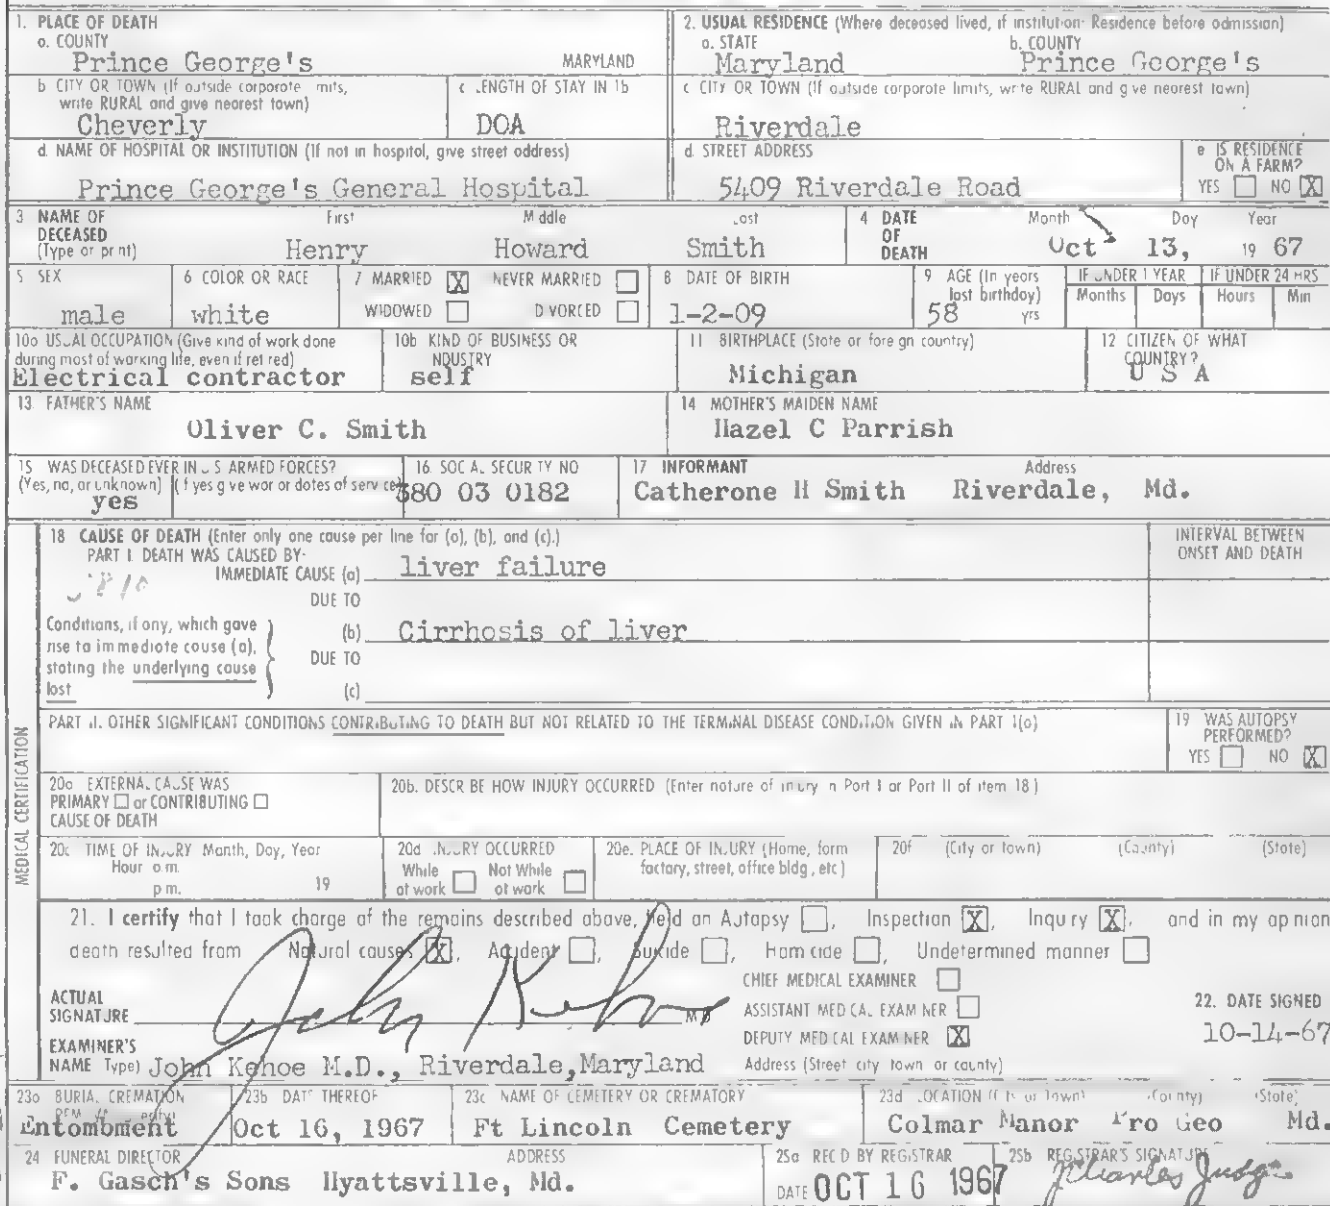 1. PLACE OF DEATH
a. COUNTY
Prince George's MARYLAND
2. USUAL RESIDENCE (Where deceased lived, if institution- Residence before admission)
a. STATE b. COUNTY
Maryland Prince George's
b CITY OR TOWN (If outside corporate mits, write RURAL and give nearest town)
Cheverly
c LENGTH OF STAY IN 1b
DOA
c CITY OR TOWN (If outside corporate limits, write RURAL and give nearest town)
Riverdale
d. NAME OF HOSPITAL OR INSTITUTION (If not in hospital, give street address)
Prince George's General Hospital
d STREET ADDRESS
5409 Riverdale Road
e IS RESIDENCE
ON A FARM?
YES NO X
3 NAME OF
DECEASED
(Type or print)
First Middle Last
Henry Howard Smith
4 DATE
OF
DEATH
Month Day Year
Oct 13, 19 67
5 SEX
male
6 COLOR OR RACE
white
7 MARRIED X NEVER MARRIED
WIDOWED DIVORCED
8 DATE OF BIRTH
1-2-09
9 AGE (In years
last birthday)
58 yrs
IF UNDER 1 YEAR
Months Days
IF UNDER 24 HRS
Hours Min
10a USUAL OCCUPATION (Give kind of work done
during most of working life, even if retired)
Electrical contractor
10b KIND OF BUSINESS OR
INDUSTRY
self
11 BIRTHPLACE (State or foreign country)
Michigan
12 CITIZEN OF WHAT
COUNTRY?
U S A
13 FATHER'S NAME
Oliver C. Smith
14 MOTHER'S MAIDEN NAME
Hazel C Parrish
15 WAS DECEASED EVER IN U S ARMED FORCES?
(Yes, no, or unknown) (If yes give war or dates of service)
yes
16 SOCIAL SECURITY NO
380 03 0182
17 INFORMANT Address
Catherone H Smith Riverdale, Md.
18 CAUSE OF DEATH (Enter only one cause per line for (a), (b), and (c).)
INTERVAL BETWEEN
ONSET AND DEATH
PART I. DEATH WAS CAUSED BY-
IMMEDIATE CAUSE (a) liver failure
DUE TO
Conditions, if any, which gave
rise to immediate cause (a),
stating the underlying cause
last
(b) Cirrhosis of liver
DUE TO
(c)
PART II. OTHER SIGNIFICANT CONDITIONS CONTRIBUTING TO DEATH BUT NOT RELATED TO THE TERMINAL DISEASE CONDITION GIVEN IN PART 1(a)
19 WAS AUTOPSY
PERFORMED?
YES NO X
MEDICAL CERTIFICATION
20a EXTERNAL CAUSE WAS
PRIMARY or CONTRIBUTING
CAUSE OF DEATH
20b. DESCRIBE HOW INJURY OCCURRED (Enter nature of injury in Part I or Part II of item 18)
20c TIME OF INJURY Month, Day, Year
Hour a.m.
p m. 19
20d INJURY OCCURRED
While Not While
at work at work
20e. PLACE OF INJURY (Home, farm
factory, street, office bldg, etc)
20f (City or town) (County) (State)
21. I certify that I took charge of the remains described above, held an Autopsy , Inspection X, Inquiry X, and in my opinion
death resulted from Natural causes X, Accident , Suicide , Homicide , Undetermined manner
CHIEF MEDICAL EXAMINER
ACTUAL
SIGNATURE John Kehoe MD
ASSISTANT MEDICAL EXAMINER
DEPUTY MEDICAL EXAMINER X
22. DATE SIGNED
10-14-67
EXAMINER'S
NAME Type) John Kehoe M.D., Riverdale,Maryland
Address (Street city town or county)
23a BURIAL CREMATION
Entombment
23b DATE THEREOF
Oct 16, 1967
23c NAME OF CEMETERY OR CREMATORY
Ft Lincoln Cemetery
23d LOCATION (City or Town) (County) (State)
Colmar Manor Pro Geo Md.
24 FUNERAL DIRECTOR ADDRESS
F. Gasch's Sons Hyattsville, Md.
25a REC'D BY REGISTRAR
DATE OCT 16 1967
25b REGISTRAR'S SIGNATURE
Charles Judge